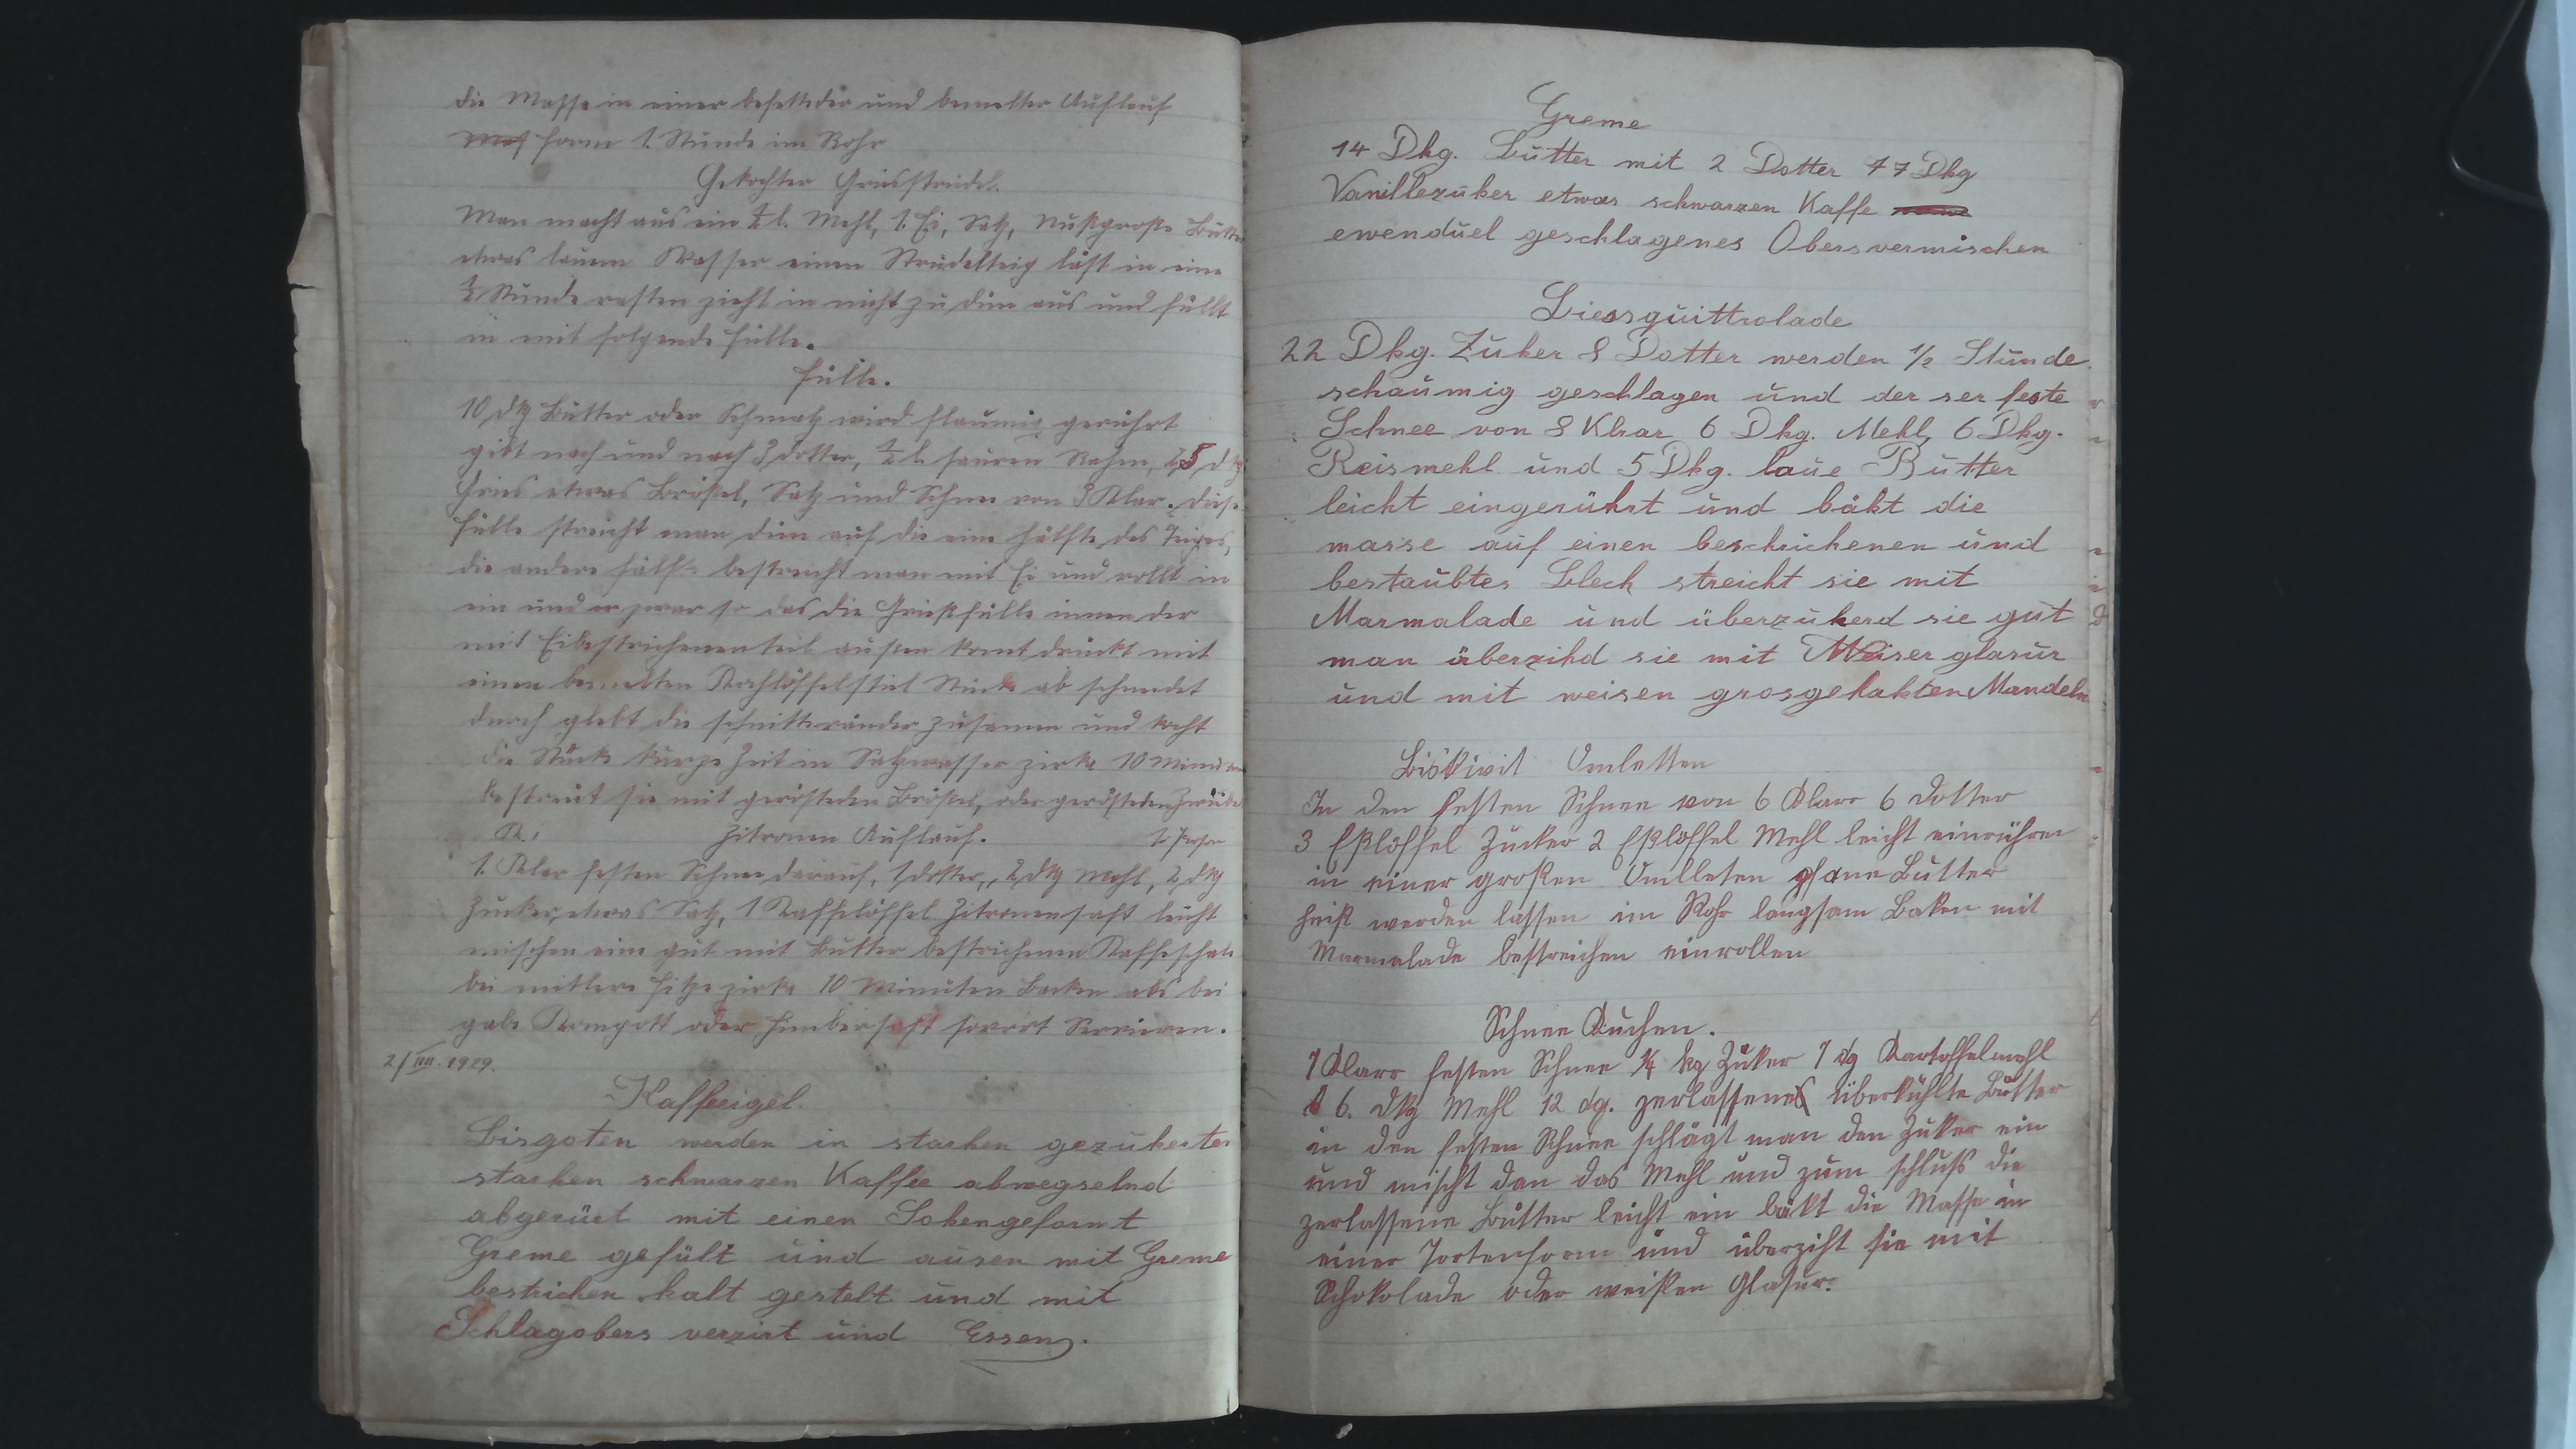 die Masse in einer befetteder und bemelter Auflauf
form 1 Stunde im Rohr
Gekochter Griesstrudel.
Man macht aus ein ½ l. Mehl, 1. Ei, Salz, Nußgroße Butter
etwas lauem Wasser einen Strudelteig läst in eine
½ Stunde rasten zieht in nicht zu dün aus und füllt
in mit folgende Fülle.
Fülle.
10 dkg Butter oder Schmalz wird flaumig gerührt
gibt nach und nach 3 Dotter, ½ l. sauren Rahm, 25 dkg
Gries etwas Brößel, Salz und Schnee von 3 Klar. Diese
Fülle streicht man dün auf die eine Hälfte des Teiges,
die andere Hälfte bestreicht man mit Ei und rollt in
ein und er zwar so das die Grießfülle innen der
mit Eibestrichenen teil außen komt drückt mit
einen bemelten Kochlöffelstiel Stücke ab schneidet
durch glebt die schnittränder zusamen und kocht
die Stücke kurze Zeit in Salzwasser zirka 10 Minuten
bestreut sie mit gerösteden Brößel, oder gerösteden
K. Zitronen Auflauf. 1. Person
1. Klar festen Schnee darauf, 1 Dotter, 2 dkg Mehl, 2 dkg
Zucker, etwas Salz, 1 Kaffelöffel Zitronensaft leicht
mischen eine gut mit Butter bestrichenen Kaffeschale
bei mittlere Hitze zirka 10 Minuten Backen als bei
gabe Kompott oder Himbersaft sovort Servieren.
2/IIII. 1929.
Kaffeeigel.
Bisgoten werden in starken gezukerter
starken schwarzen Kaffee abwegselnd
abgerüet mit einen Sokengeformt
Greme gefült und ausen mit Greme
bestrichen kalt gestelt und mit
Schlagobers verzirt und Essen.
Greme
14 Dkg. Butter mit 2 Dotter 7 Dkg
Vanillezuker etwas schwarzen Kaffe
ewenduel geschlagenes Obers vermischen
Biessquittrolade
22 Dkg. Zuker 8 Dotter werden 1/2 Stunde
schaumig geschlagen und der ser feste
Schnee von 8 Klrar 6 Dkg. Mehl, 6 Dkg.
Reismehl und 5 Dkg. laue Butter
leicht eingerührt und bäkt die
masse auf einen beschrichenen und
bestaubtes Blech streicht sie mit
Marmalade und überzukerd sie gut
man überzihd sie mit Weiser glasur
und mit weisen grosgehakten Mandeln
Biskivit Omletten
In den festen Schnee von 6 Klarr 6 Dotter
3 Eßlöffel Zucker 2 Eßlöffel Mehl leicht einrühren
in einer großen Omlleten pfane Butter
heiß werden lassen im Rohr langsam Baken mit
Marmalade bestreichen einrollen
Schnee Kuchen.
7 Klarr festen Schnee ¼ kg Zuker 7 dg Kartoffelmehl
6. dkg Mehl 12 dg. zerlassene überkühlte Butter
in den festen Schnee schlägt man den Zuker ein
und mischt dan das Mehl und zum schluß die
zerlassene Butter leicht ein bäkt die Masse in
einer Tortenform und überziht sie mit
Schokolade oder weißen Glasur.